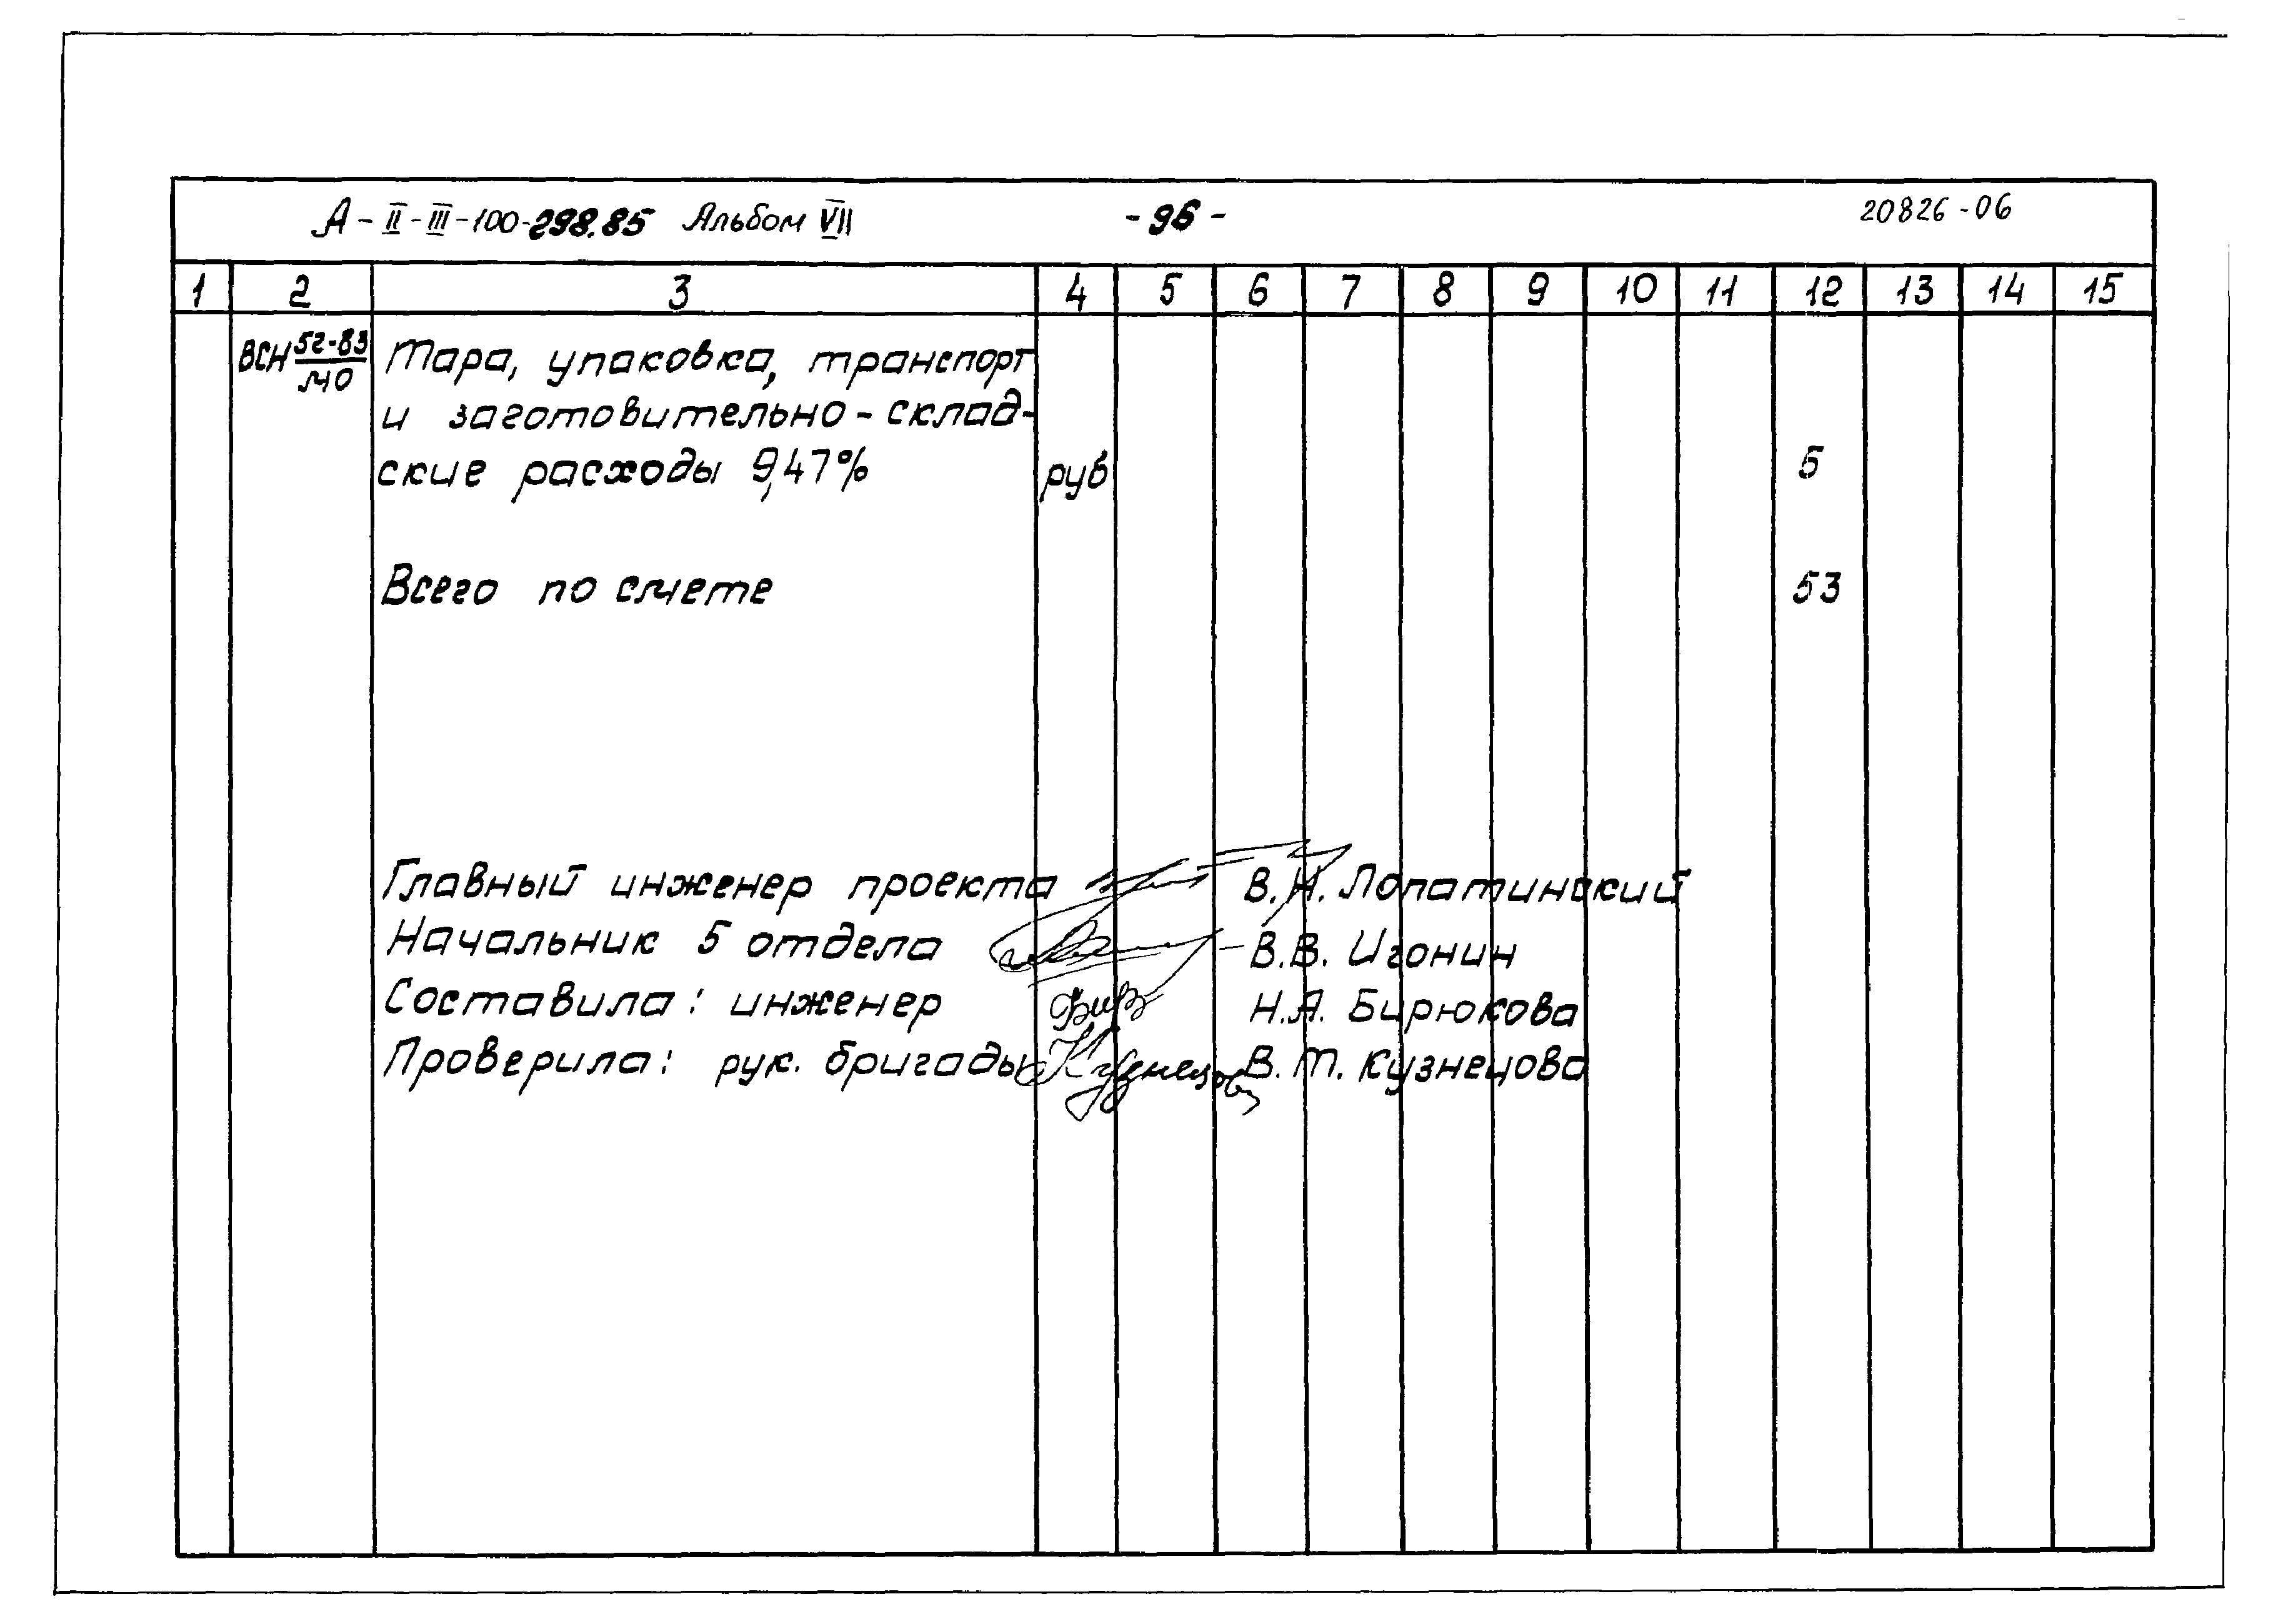 А-II-III-100-298.85 Альбом VII -96- 20826-06
1 2 3 4 5 6 7 8 9 10 11 12 13 14 15
ВСН 52-83 Тара, упаковка, транспорт
МО
и заготовительно-склад-
ские расходы 9,47% руб 5
Всего по смете 53
Главный инженер проекта В.Н. Лопатинский
Начальник 5 отдела В.В. Игонин
Составила: инженер Н.А. Бирюкова
Проверила: рук. бригады В.Т. Кузнецова